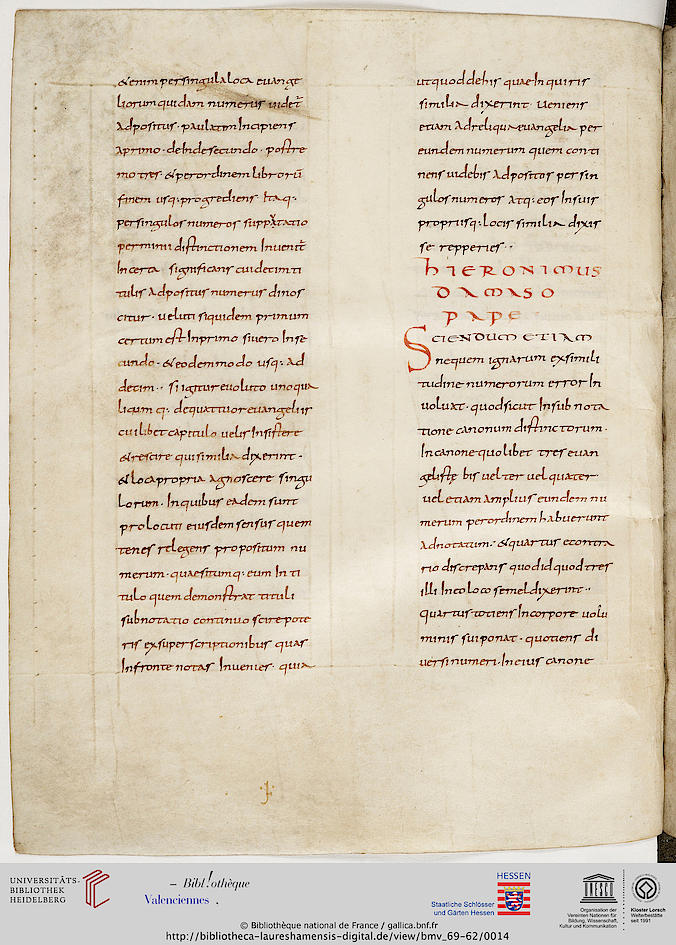 &enim per singula loca euange
liorum quidam numerus uidet̄
Adpositus · paulatim Incipiens
Aprimo · deInde secundo · postre
mo tres · & per ordinem librorū
finem usq: progrediens Itaq:
per singulos numeros suppxtatio
perminii distinctionem Inuenit̄
Incerta significans cui decim ti
tulis Adpositus numerus dinos
citur · ueluti siquidem primum
certum est Inprimo siuero Inse
cundo · & eodem modo usq: ad
decim · · si igitur euoluto uno qua
licum q: de quattuor euangeliis
cuilibet capitulo uelis Insistere
& rescire qui similia dixerint ·
& loca propria agnoscere singu
lorum · In quibus eadem sunt
prolocuti eiusdem sensus quem
tenes relegens propositum nu
merum · quaesitumq: eum In ti
tulo quem demonstrat tituli
subnotatio continuo scire pote
ris ex superscriptionibus quas
In fronte notas Inuenies · quia
ut quod debis quae In quiris
similia dixerint ueniens
etiam Ad reliqua euangelia per
eundem numerum quem conti
nens uidebis Adpositos per sin
gulos numeros atq: eos Insuis
propriisq: locis similia dixis
se repperies · ·
hIERONIMUS
DAMASO
PAPE
SCIENDUM ETIAM
ne quem ignarum ex simili
tudine numerorum error In
uoluat · quod sicut In subnota
tione canonum distinctorum ·
In canone quolibet tres euan
gelistę bis uel ter uel quater
uel etiam amplius eundem nu
merum per ordinem habuerunt
Adnotatum · & quartus econtra
rio discrepans quod id quod tres
illi Inco loco semel dixerint · ·
quartus totiens Incorpore uolu
minis sui ponat · quotiens di
uersi numeri · In eius canone
UNIVERSITÄTS-
BIBLIOTHEK
HEIDELBERG
Bibl!othèque
Valenciennes .
HESSEN
Staatliche Schlösser
und Gärten Hessen
UNESCO
Organisation der
Vereinten Nationen für
Bildung, Wissenschaft,
Kultur und Kommunikation
Kloster Lorsch
Welterbestätte
seit 1991
© Bibliothèque national de France / gallica.bnf.fr
http://bibliotheca-laureshamensis-digital.de/view/bmv_69-62/0014